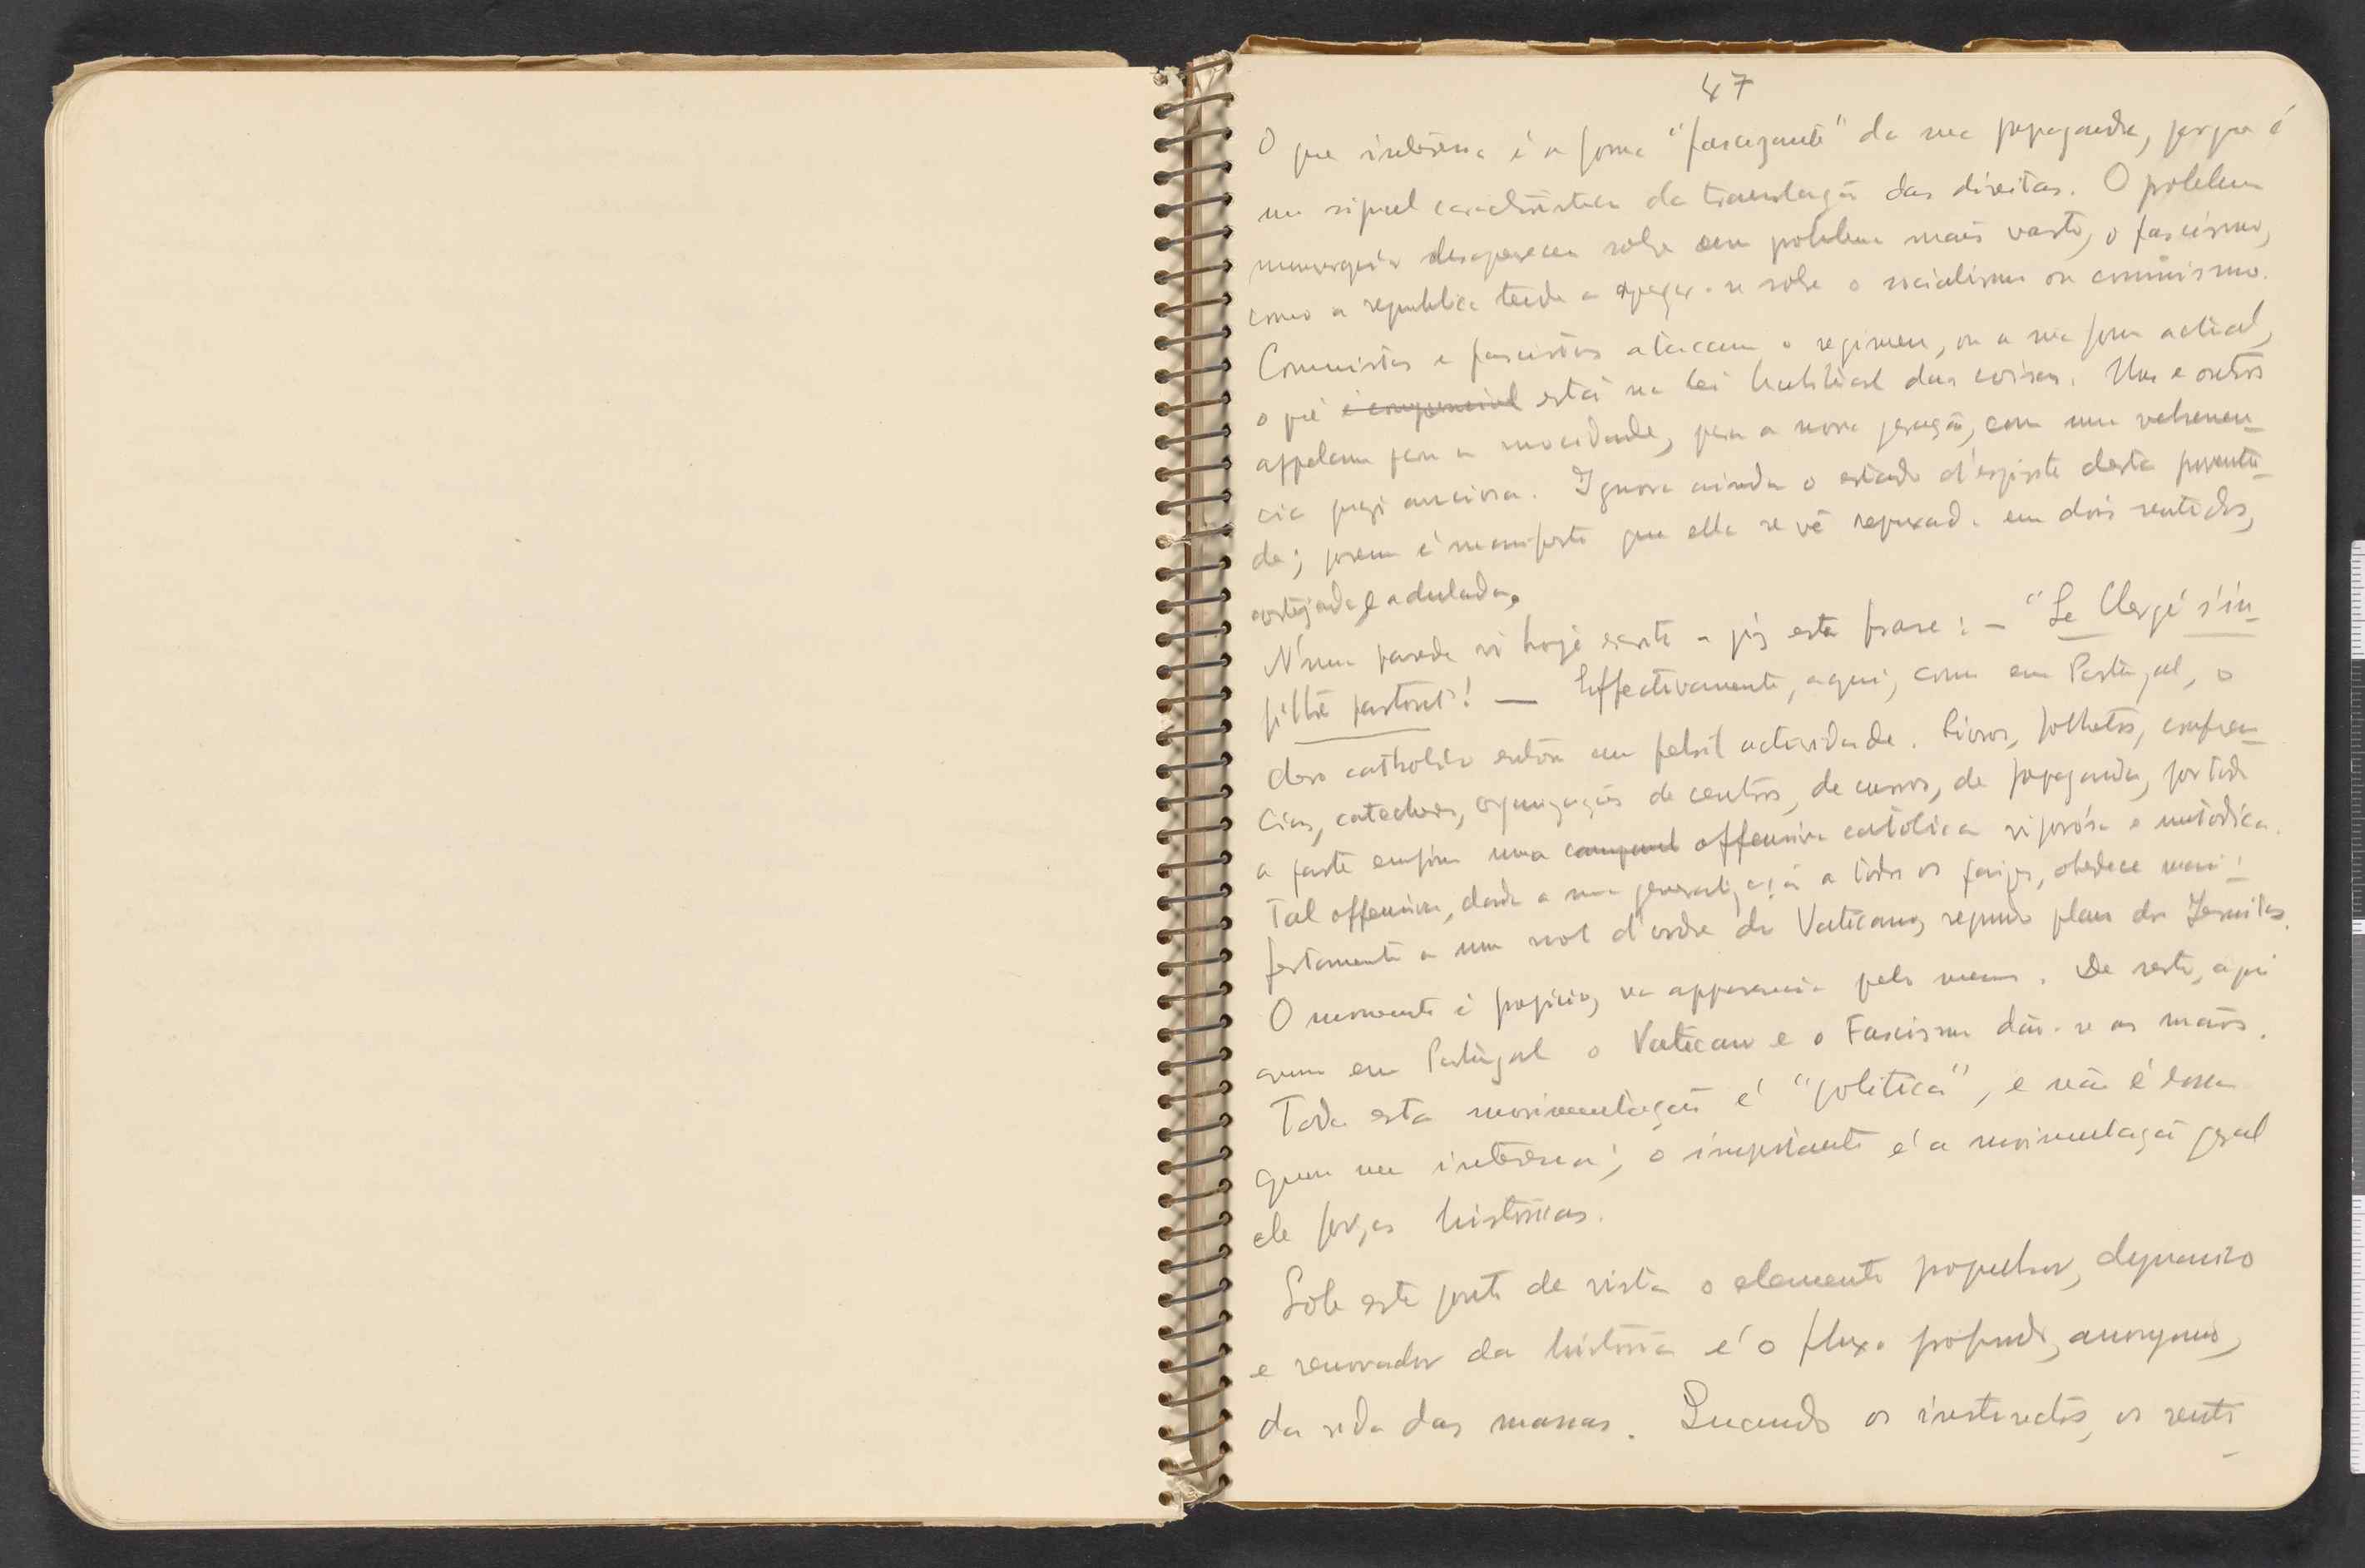 47
O que interessa é a forma "fascizante" da sua propaganda, porque é
um signal caracteristico da translação das direitas. O problema
monarquia desaparece sobre um problema mais vasto, o fascismo,
como a republica tende a apagar-se sobre o socialismo ou comunismo.
Comunistas e fascistas atacam o regimen, ou a sua forma actual,
o que está na lei habitual das coisas. Uns e outros
appelam para a mocidade, para a nova geração, com uma vehemen-
cia quasi anciosa. Ignoro ainda o estado d'espirito desta juventu-
de; porem é manifesto que ella se vê repuxada em dois sentidos,
cortejada e adulada.
N'uma parede vi hoje escrita a giz esta frase: – "Le Clergé s'in-
filtre partout"! — Effectivamente, aqui, como em Portugal, o
clero catholico entrou em febril actividade. Livros, folhetos, conferen-
cias, catecheses, organizações de centros, de cursos, de propaganda, por toda
a parte emfim uma offensiva católica vigorósa e metódica.
Tal offensiva, dada a sua generalização a todos os paizes, obedece mani-
festamente a um mot d'ordre do Vaticano, segundo plano dos Jesuitas.
O momento é propicio, na apparencia pelo menos. De resto, aqui
como em Portugal o Vaticano e o Fascismo dão-se as mãos.
Toda esta movimentação é "politica", e não é essa
que me interessa; o importante é a movimentação geral
de forças históricas.
Sob este ponto de vista o elemento popular, dynamico
e renovador da história é o fluxo profundo, anonymo,
da vida das massas. Quando os instinctos, os senti-